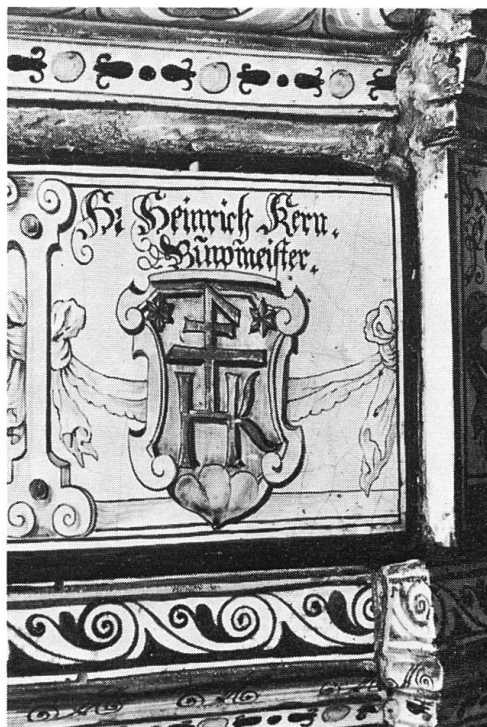 H: Heinrich Kern.
Bůwmeister.
HK